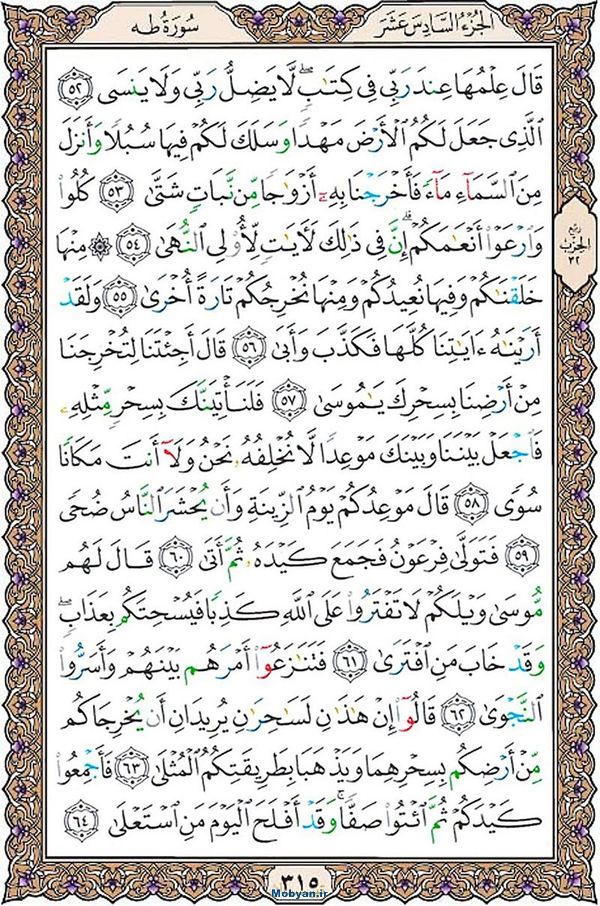 الجُزءُ السَّادِسَ عَشَرَ
سُورَةُ طه
قَالَ عِلْمُهَا عِندَ رَبِّي فِي كِتَٰبٖۖ لَّا يَضِلُّ رَبِّي وَلَا يَنسَى ٥٢
ٱلَّذِي جَعَلَ لَكُمُ ٱلْأَرْضَ مَهْدٗا وَسَلَكَ لَكُمْ فِيهَا سُبُلٗا وَأَنزَلَ
مِنَ ٱلسَّمَآءِ مَآءٗ فَأَخْرَجْنَا بِهِۦٓ أَزْوَٰجٗا مِّن نَّبَاتٖ شَتَّىٰ ٥٣ كُلُوا۟
وَٱرْعَوْا۟ أَنْعَٰمَكُمْۚ إِنَّ فِي ذَٰلِكَ لَأٓيَٰتٖ لِّأُو۟لِي ٱلنُّهَىٰ ٥٤ ۞ مِنْهَا
خَلَقْنَٰكُمْ وَفِيهَا نُعِيدُكُمْ وَمِنْهَا نُخْرِجُكُمْ تَارَةً أُخْرَىٰ ٥٥ وَلَقَدْ
أَرَيْنَٰهُ ءَايَٰتِنَا كُلَّهَا فَكَذَّبَ وَأَبَىٰ ٥٦ قَالَ أَجِئْتَنَا لِتُخْرِجَنَا
مِنْ أَرْضِنَا بِسِحْرِكَ يَٰمُوسَىٰ ٥٧ فَلَنَأْتِيَنَّكَ بِسِحْرٖ مِّثْلِهِۦ
فَٱجْعَلْ بَيْنَنَا وَبَيْنَكَ مَوْعِدٗا لَّا نُخْلِفُهُۥ نَحْنُ وَلَآ أَنتَ مَكَانٗا
سُوٗى ٥٨ قَالَ مَوْعِدُكُمْ يَوْمُ ٱلزِّينَةِ وَأَن يُحْشَرَ ٱلنَّاسُ ضُحٗى
٥٩ فَتَوَلَّىٰ فِرْعَوْنُ فَجَمَعَ كَيْدَهُۥ ثُمَّ أَتَىٰ ٦٠ قَالَ لَهُم
مُّوسَىٰ وَيْلَكُمْ لَا تَفْتَرُوا۟ عَلَى ٱللَّهِ كَذِبٗا فَيُسْحِتَكُم بِعَذَابٖۖ
وَقَدْ خَابَ مَنِ ٱفْتَرَىٰ ٦١ فَتَنَٰزَعُوٓا۟ أَمْرَهُم بَيْنَهُمْ وَأَسَرُّوا۟
ٱلنَّجْوَىٰ ٦٢ قَالُوٓا۟ إِنْ هَٰذَٰنِ لَسَٰحِرَٰنِ يُرِيدَانِ أَن يُخْرِجَاكُم
مِّنْ أَرْضِكُم بِسِحْرِهِمَا وَيَذْهَبَا بِطَرِيقَتِكُمُ ٱلْمُثْلَىٰ ٦٣ فَأَجْمِعُوا۟
كَيْدَكُمْ ثُمَّ ٱئْتُوا۟ صَفّٗاۚ وَقَدْ أَفْلَحَ ٱلْيَوْمَ مَنِ ٱسْتَعْلَىٰ ٦٤
رُبع
الحِزب
٣٢
٣١٥
Mobyan.ir